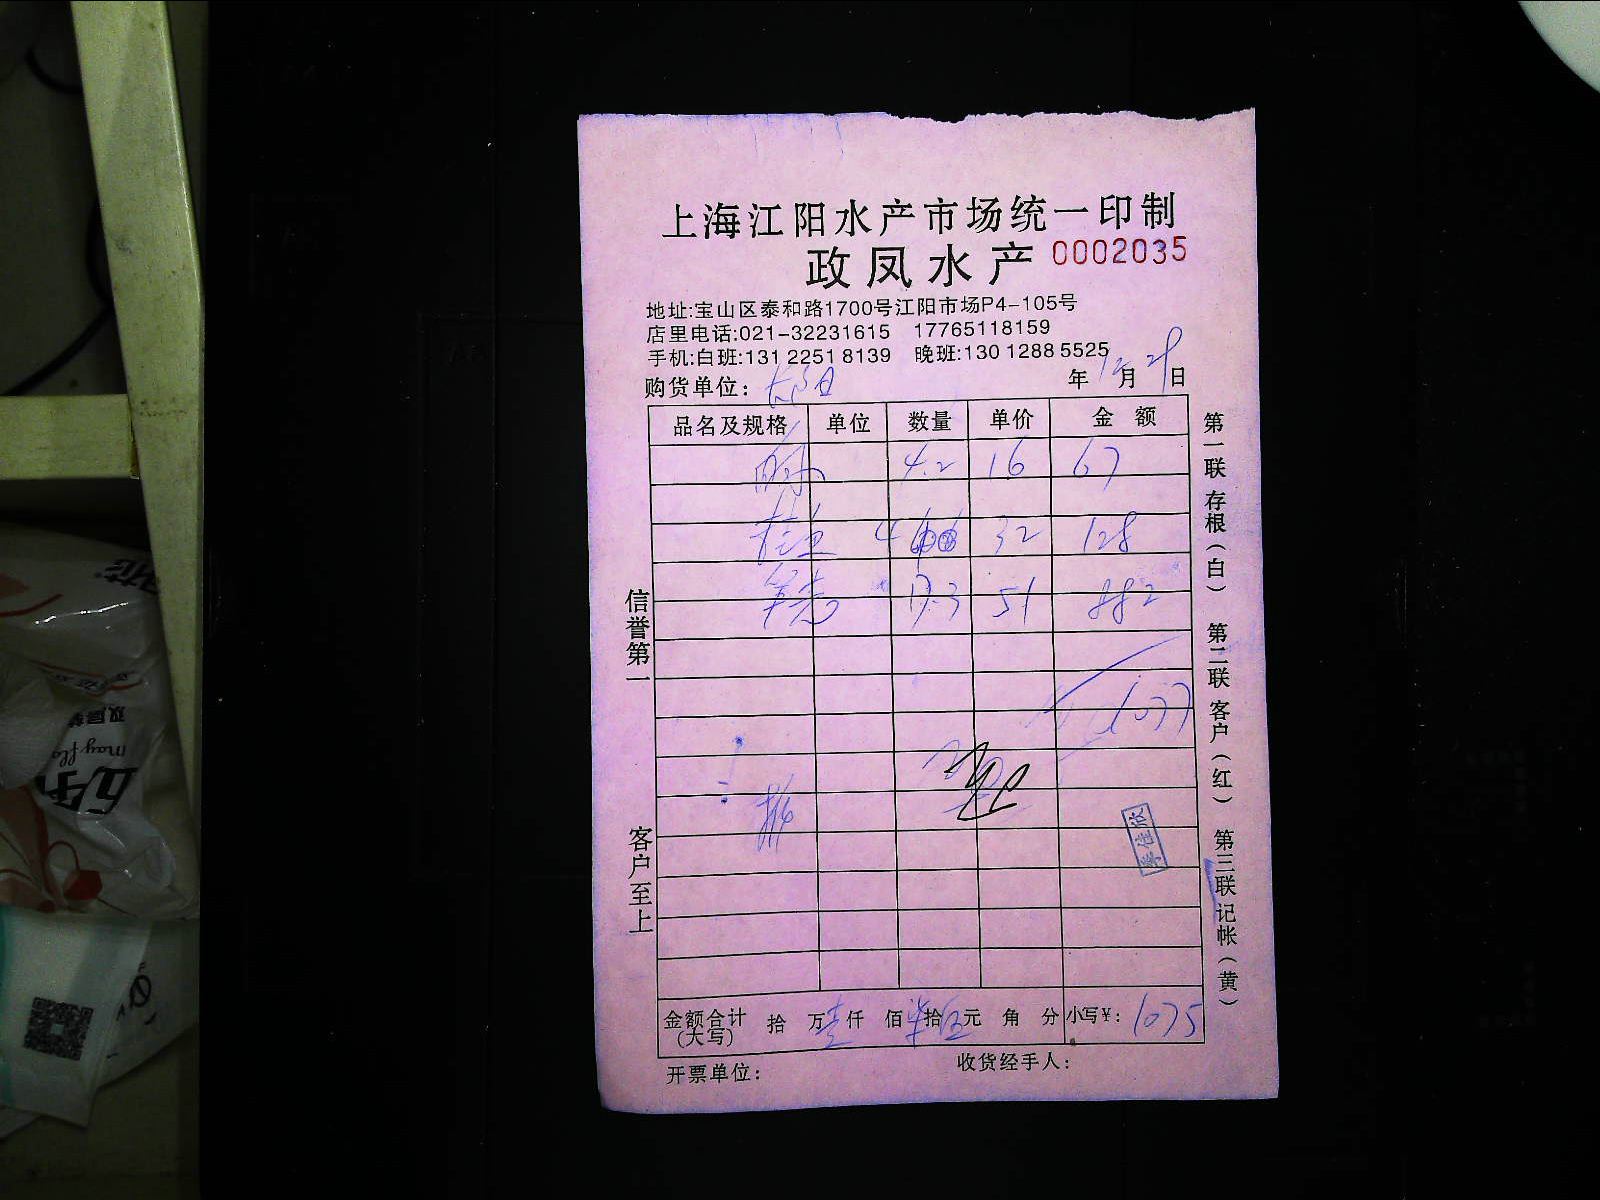 上海江阳水产市场统一印制
政凤水产 0002035
地址:宝山区泰和路1700号江阳市场P4-105号
店里电话:021-32231615 17765118159
手机:白班:131 2251 8139 晚班:130 1288 5525
购货单位: 年 12 月 29 日
品名及规格 单位 数量 单价 金 额
4.2 16 67
桂鱼 4 32 128
笋壳 17.3 51 882
1077
金额合计(大写) 拾 万 壹 仟 佰 柒 拾 伍 元 角 分 小写¥: 1075
开票单位: 收货经手人:
信誉第一
客户至上
第一联 存根(白) 第二联 客户(红) 第三联 记帐(黄)
五月花
may flo